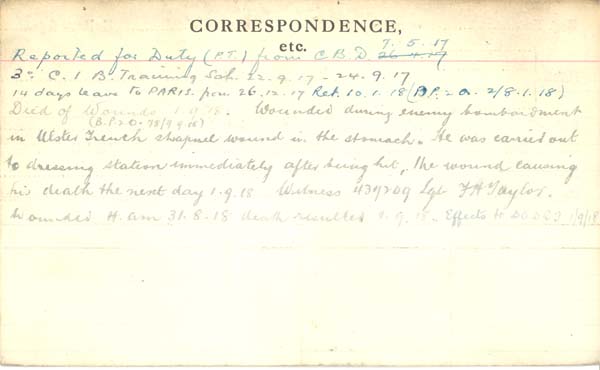 CORRESPONDENCE,
etc.
7. 5. 17
Reported for Duty (P.T.) from C.B.D 26.4.17
3rd C. I B. Training Sch. 22.9.17 - 24.9.17
14 days leave to PARIS. from 26.12.17 Ret. 10.1.18 (B.P. 2-a. 2/8.1.18)
Died of Wounds 1.9.18. Wounded during enemy bombardment
(B.P.2.O. 78/9.9.18)
in Ulster Trench shrapnel wound in the stomach. He was carried out
to dressing station immediately after being hit, the wound causing
his death the next day 1.9.18 Witness 439209 Sgt F H Taylor.
Wounded 4. am 31.8.18 death resulted 1.9.18. Effects to 1/9/18.